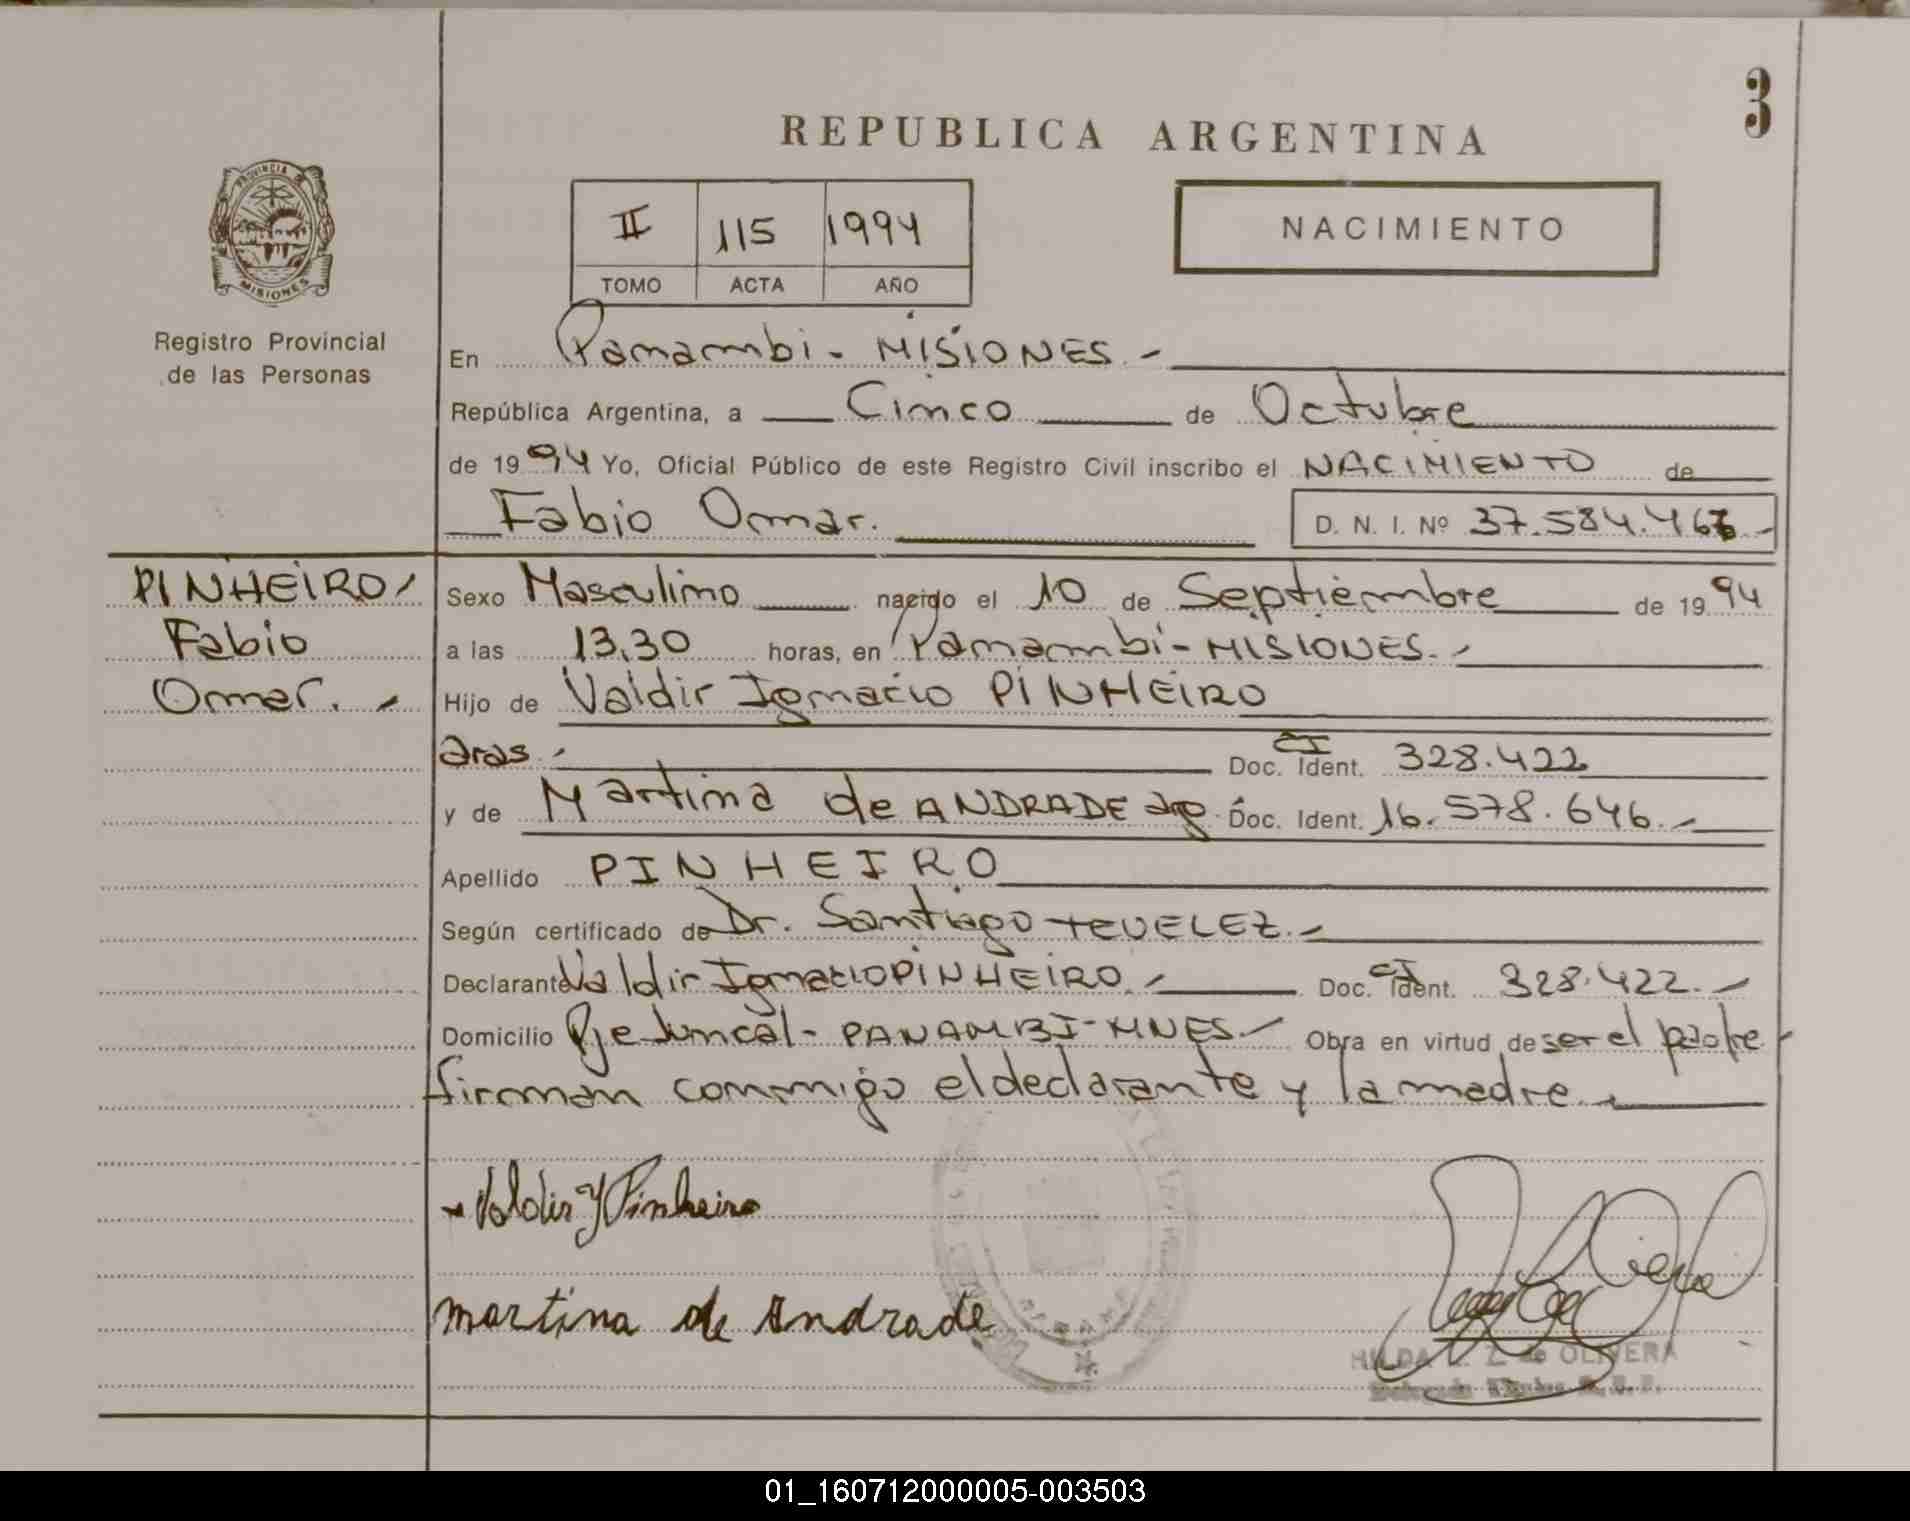 3
REPUBLICA ARGENTINA
PROVINCIA DE
MISIONES
II 115 1994
TOMO ACTA AÑO
NACIMIENTO
Registro Provincial
de las Personas
En Panambi - MISIONES -
República Argentina, a Cinco de Octubre
de 1994 Yo, Oficial Público de este Registro Civil inscribo el NACIMIENTO de
Fabio Omar. D. N. I. Nº 37.584.466 -
PINHEIRO
Fabio
Omar. -
Sexo Masculino nacido el 10 de Septiembre de 1994
a las 13,30 horas, en Panambi - MISIONES. -
Hijo de Valdir Ignacio PINHEIRO
aras. - Doc. Ident. CI 328.422
y de Martina de ANDRADE arg. Doc. Ident. 16.578.646. -
Apellido PINHEIRO
Según certificado de Dr. Santiago TEVELEZ. -
Declarante Valdir Ignacio PINHEIRO. - Doc. Ident. CI 328.422. -
Domicilio Pje Juncal - PANAMBI - MNES. - Obra en virtud de ser el padre -
firman conmigo el declarante y la madre. -
Valdir Y Pinheiro
martina de Andrade
HILDA Z. de OLIVERA
01_160712000005-003503